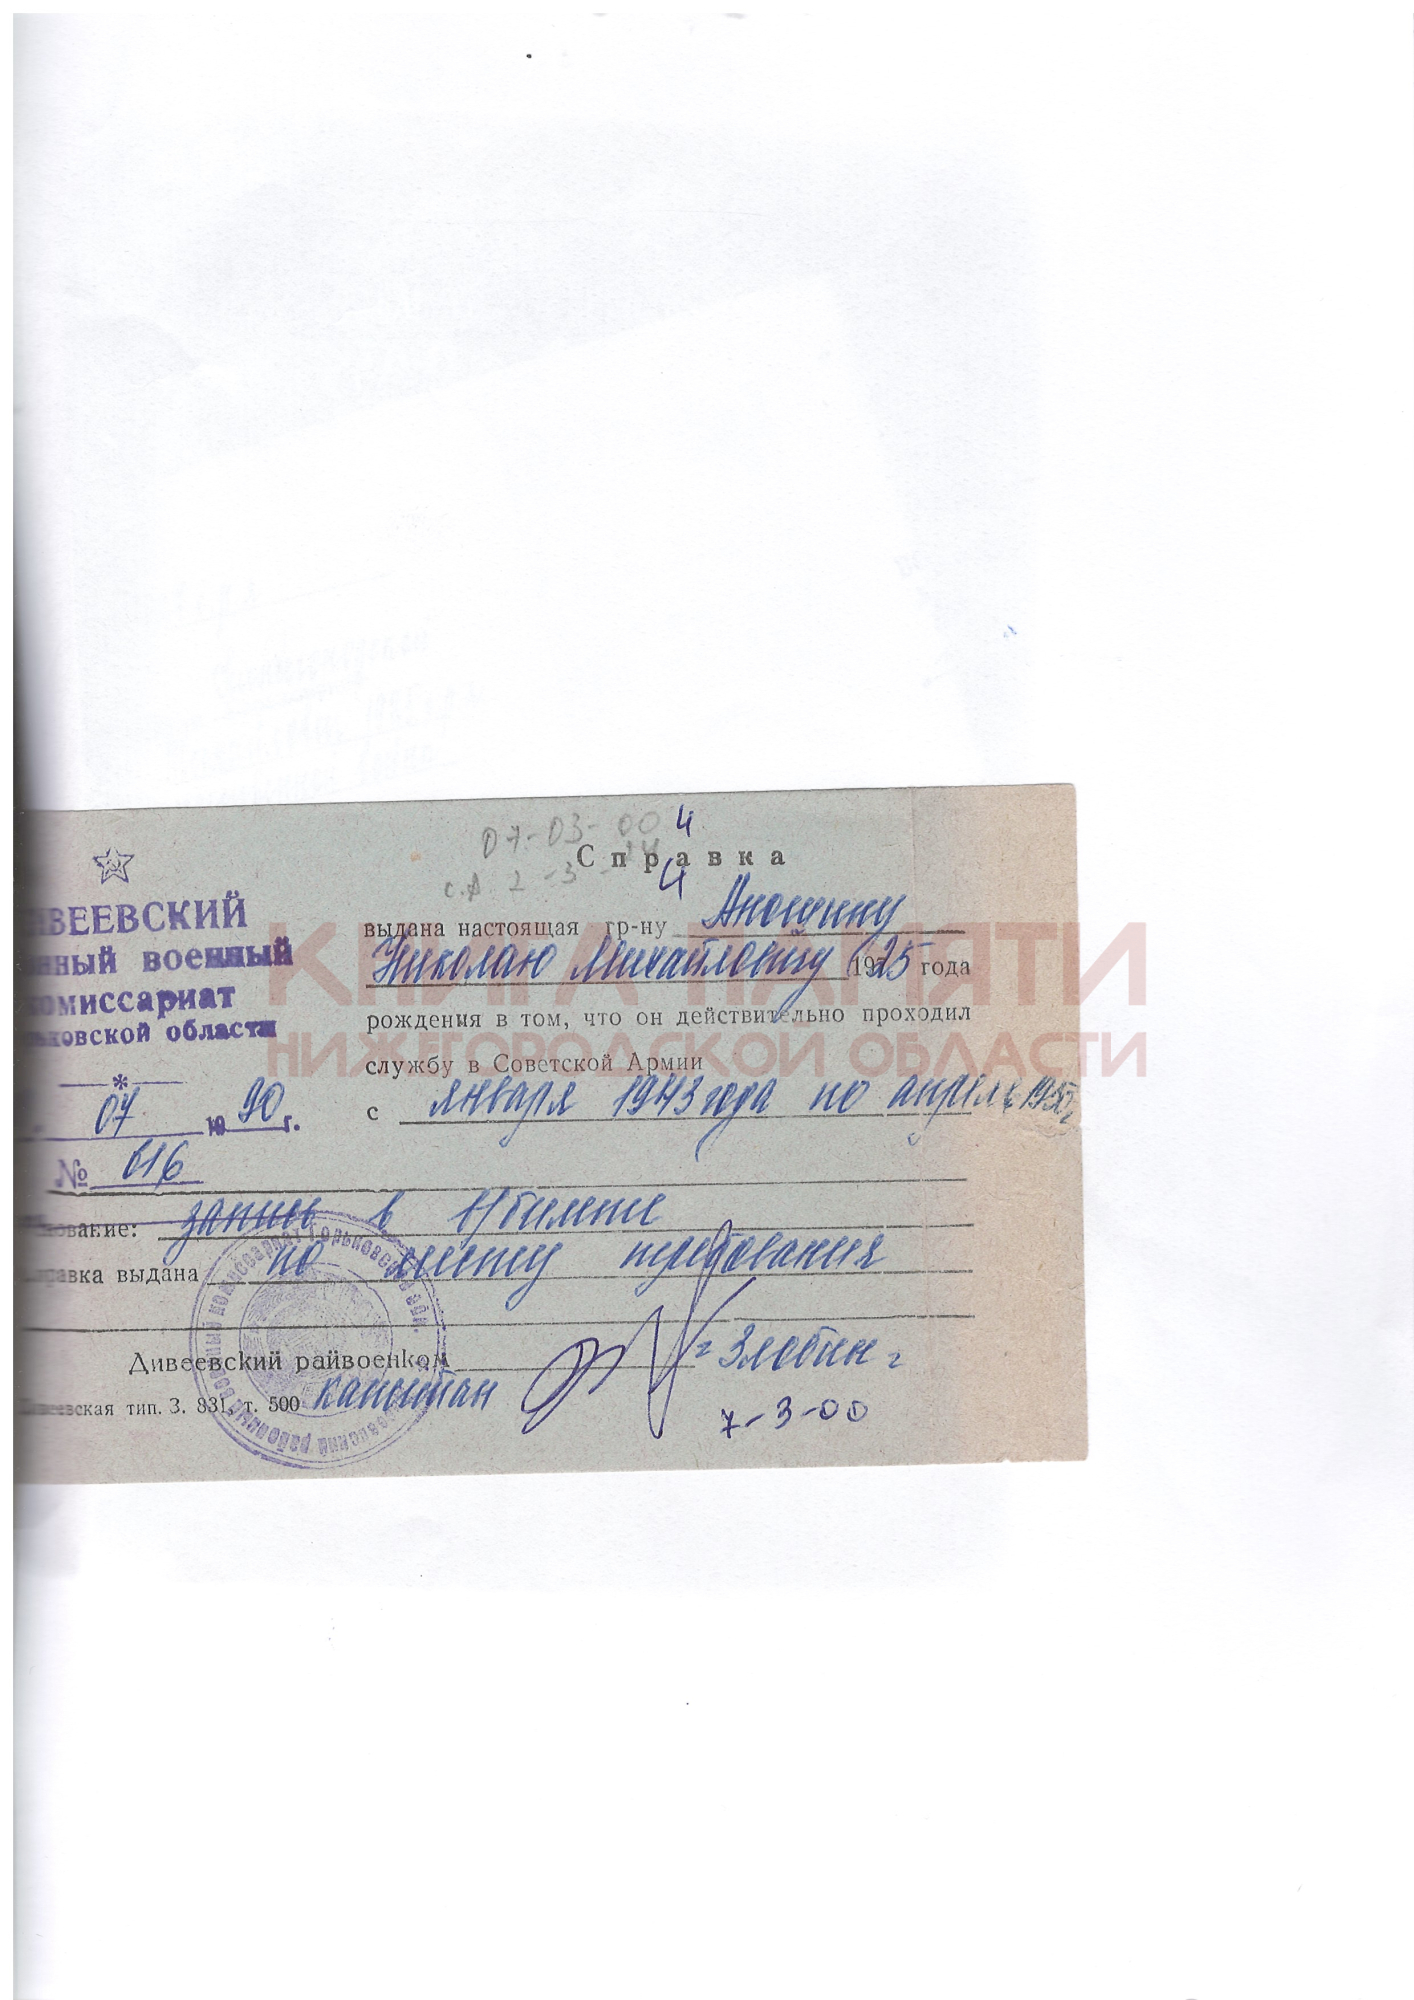 07-03-00 4
Справка
с.А. 2-3- 4
ВЕЕВСКИЙ
ный военный
комиссариат
ьковской области
*
07 1990 г.
№ 616
выдана настоящая гр-ну Аношину
Николаю Михайловичу 1925 года
рождения в том, что он действительно проходил
службу в Советской Армии
с января 1943 года по апрель 1950 г
ование: запись в в/билете
равка выдана по месту требования
Дивеевский райвоенком г Злобин г
капитан
Дивеевская тип. З. 831, т. 500
7-3-00
КНИГА ПАМЯТИ
НИЖЕГОРОДСКОЙ ОБЛАСТИ